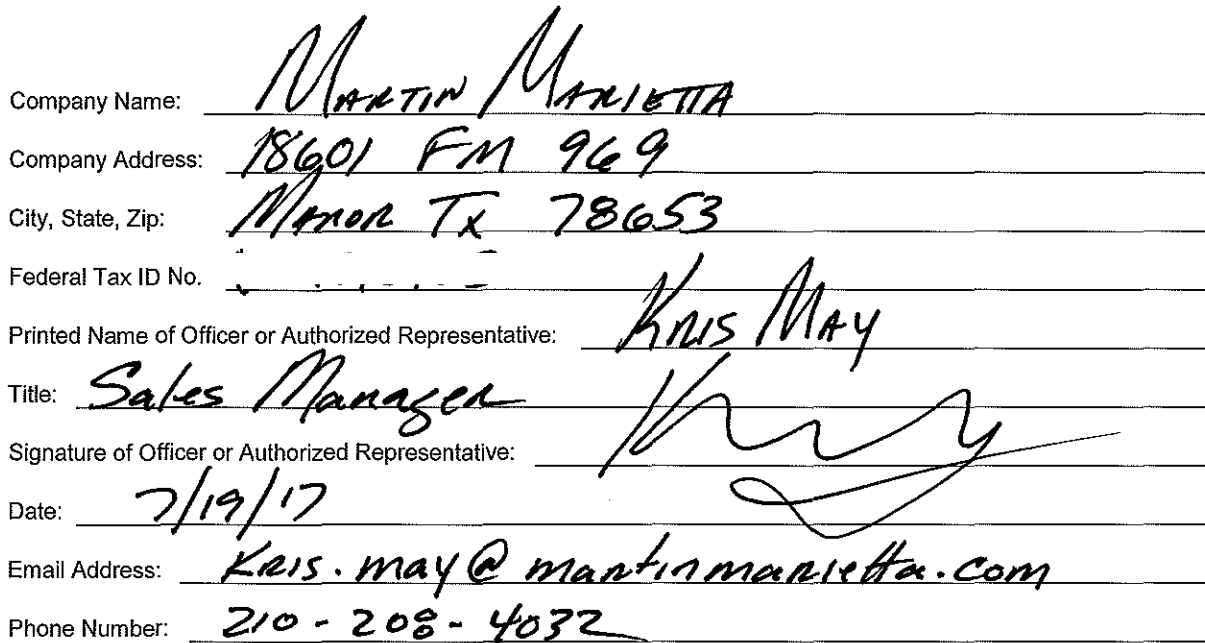 Company Name: MARTIN MARIETTA
Company Address: 18601 FM 969
City, State, Zip: MANOR TX 78653
Federal Tax ID No.
Printed Name of Officer or Authorized Representative: KRIS MAY
Title: Sales Manager
Signature of Officer or Authorized Representative:
Date: 7/19/17
Email Address: Kris.may@martinmarietta.com
Phone Number: 210-208-4032